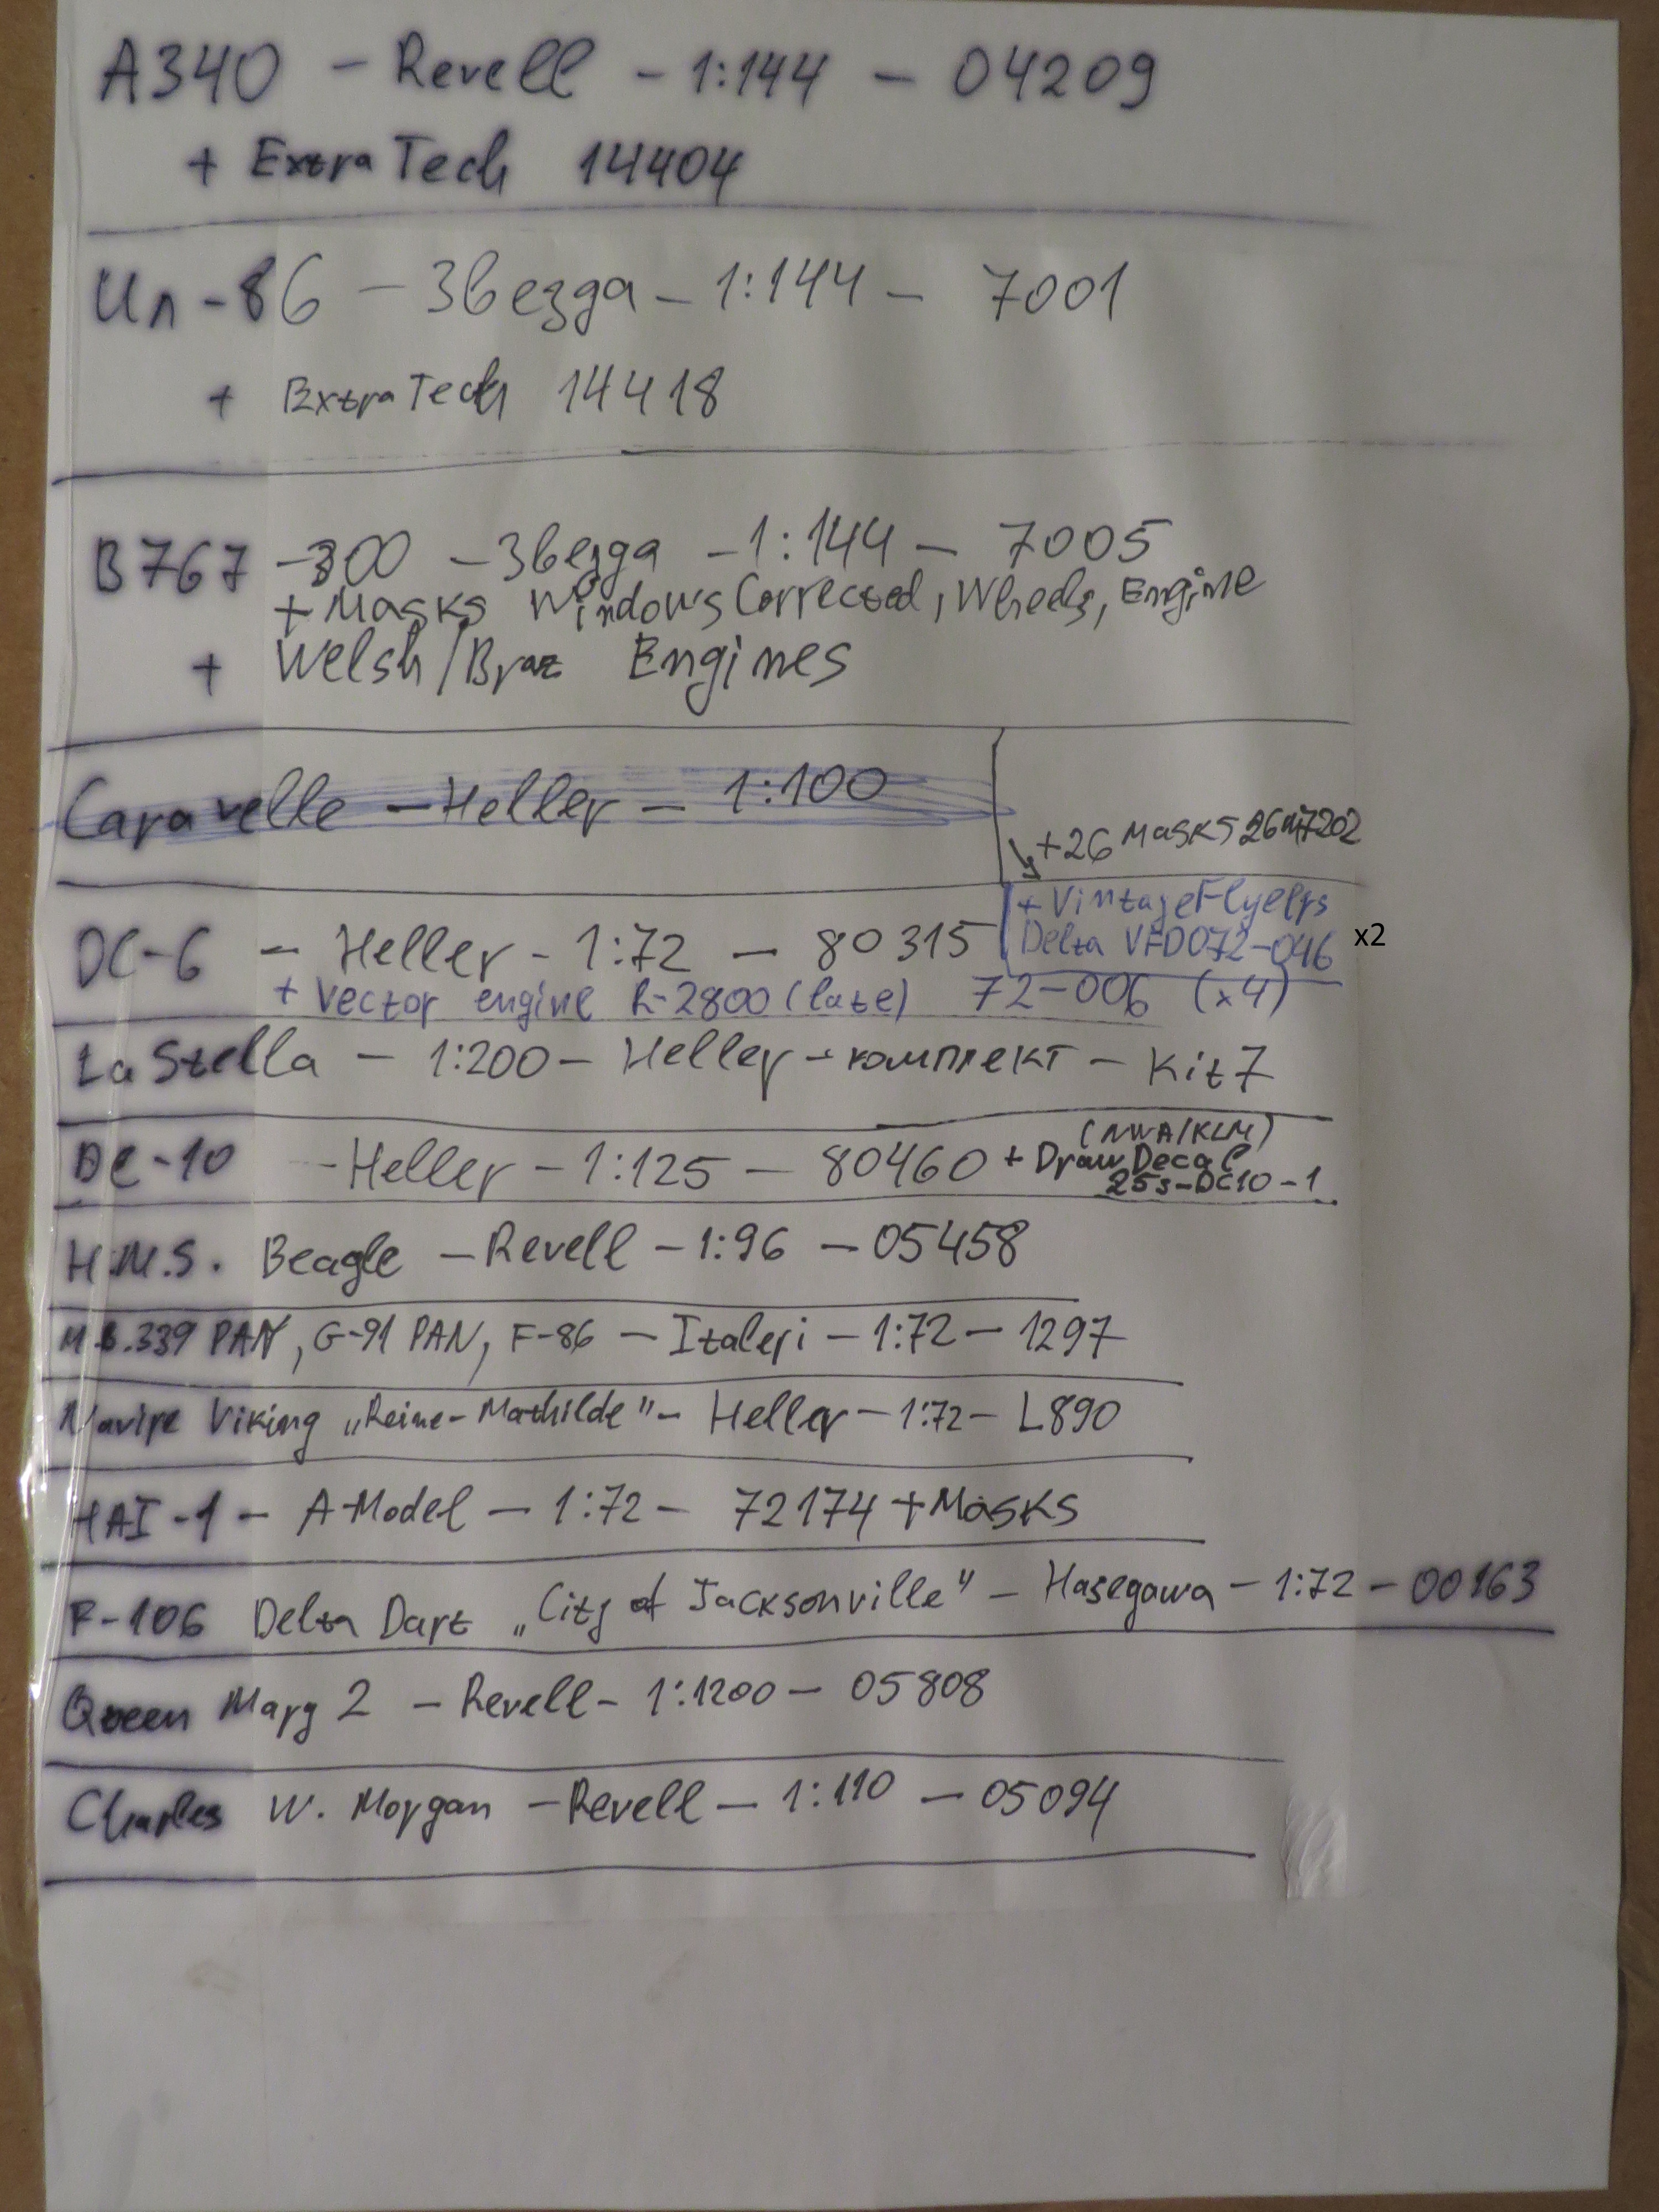 A340 – Revell – 1:144 – 04209
+ Extra Tech 14404
Ил-86 – Звезда – 1:144 – 7001
+ Extra Tech 14418
B767 -300 – Звезда – 1:144 – 7005
+ Masks Windows Corrected, Wheels, Engine
+ Welsh/Braz Engines
Caravelle – Heller – 1:100
+26 Masks 26M7202
+ VintageFlyers
DC-6 – Heller – 1:72 – 80315
Delta VFD072-046 x2
+ Vector engine R-2800 (late) 72-006 (x4)
La Stella – 1:200 – Heller – комплект – Kit 7
(NWA/KLM)
DC-10 – Heller – 1:125 – 80460 + Draw Decal
25s-DC10-1
H.M.S. Beagle – Revell – 1:96 – 05458
M.B.339 PAN, G-91 PAN, F-86 – Italeri – 1:72 – 1297
Navire Viking „Reine-Mathilde" – Heller – 1:72 – L890
HAI-1 – A-Model – 1:72 – 72174 + Masks
F-106 Delta Dart „City of Jacksonville" – Hasegawa – 1:72 – 00163
Queen Mary 2 – Revell – 1:1200 – 05808
Charles W. Morgan – Revell – 1:110 – 05094